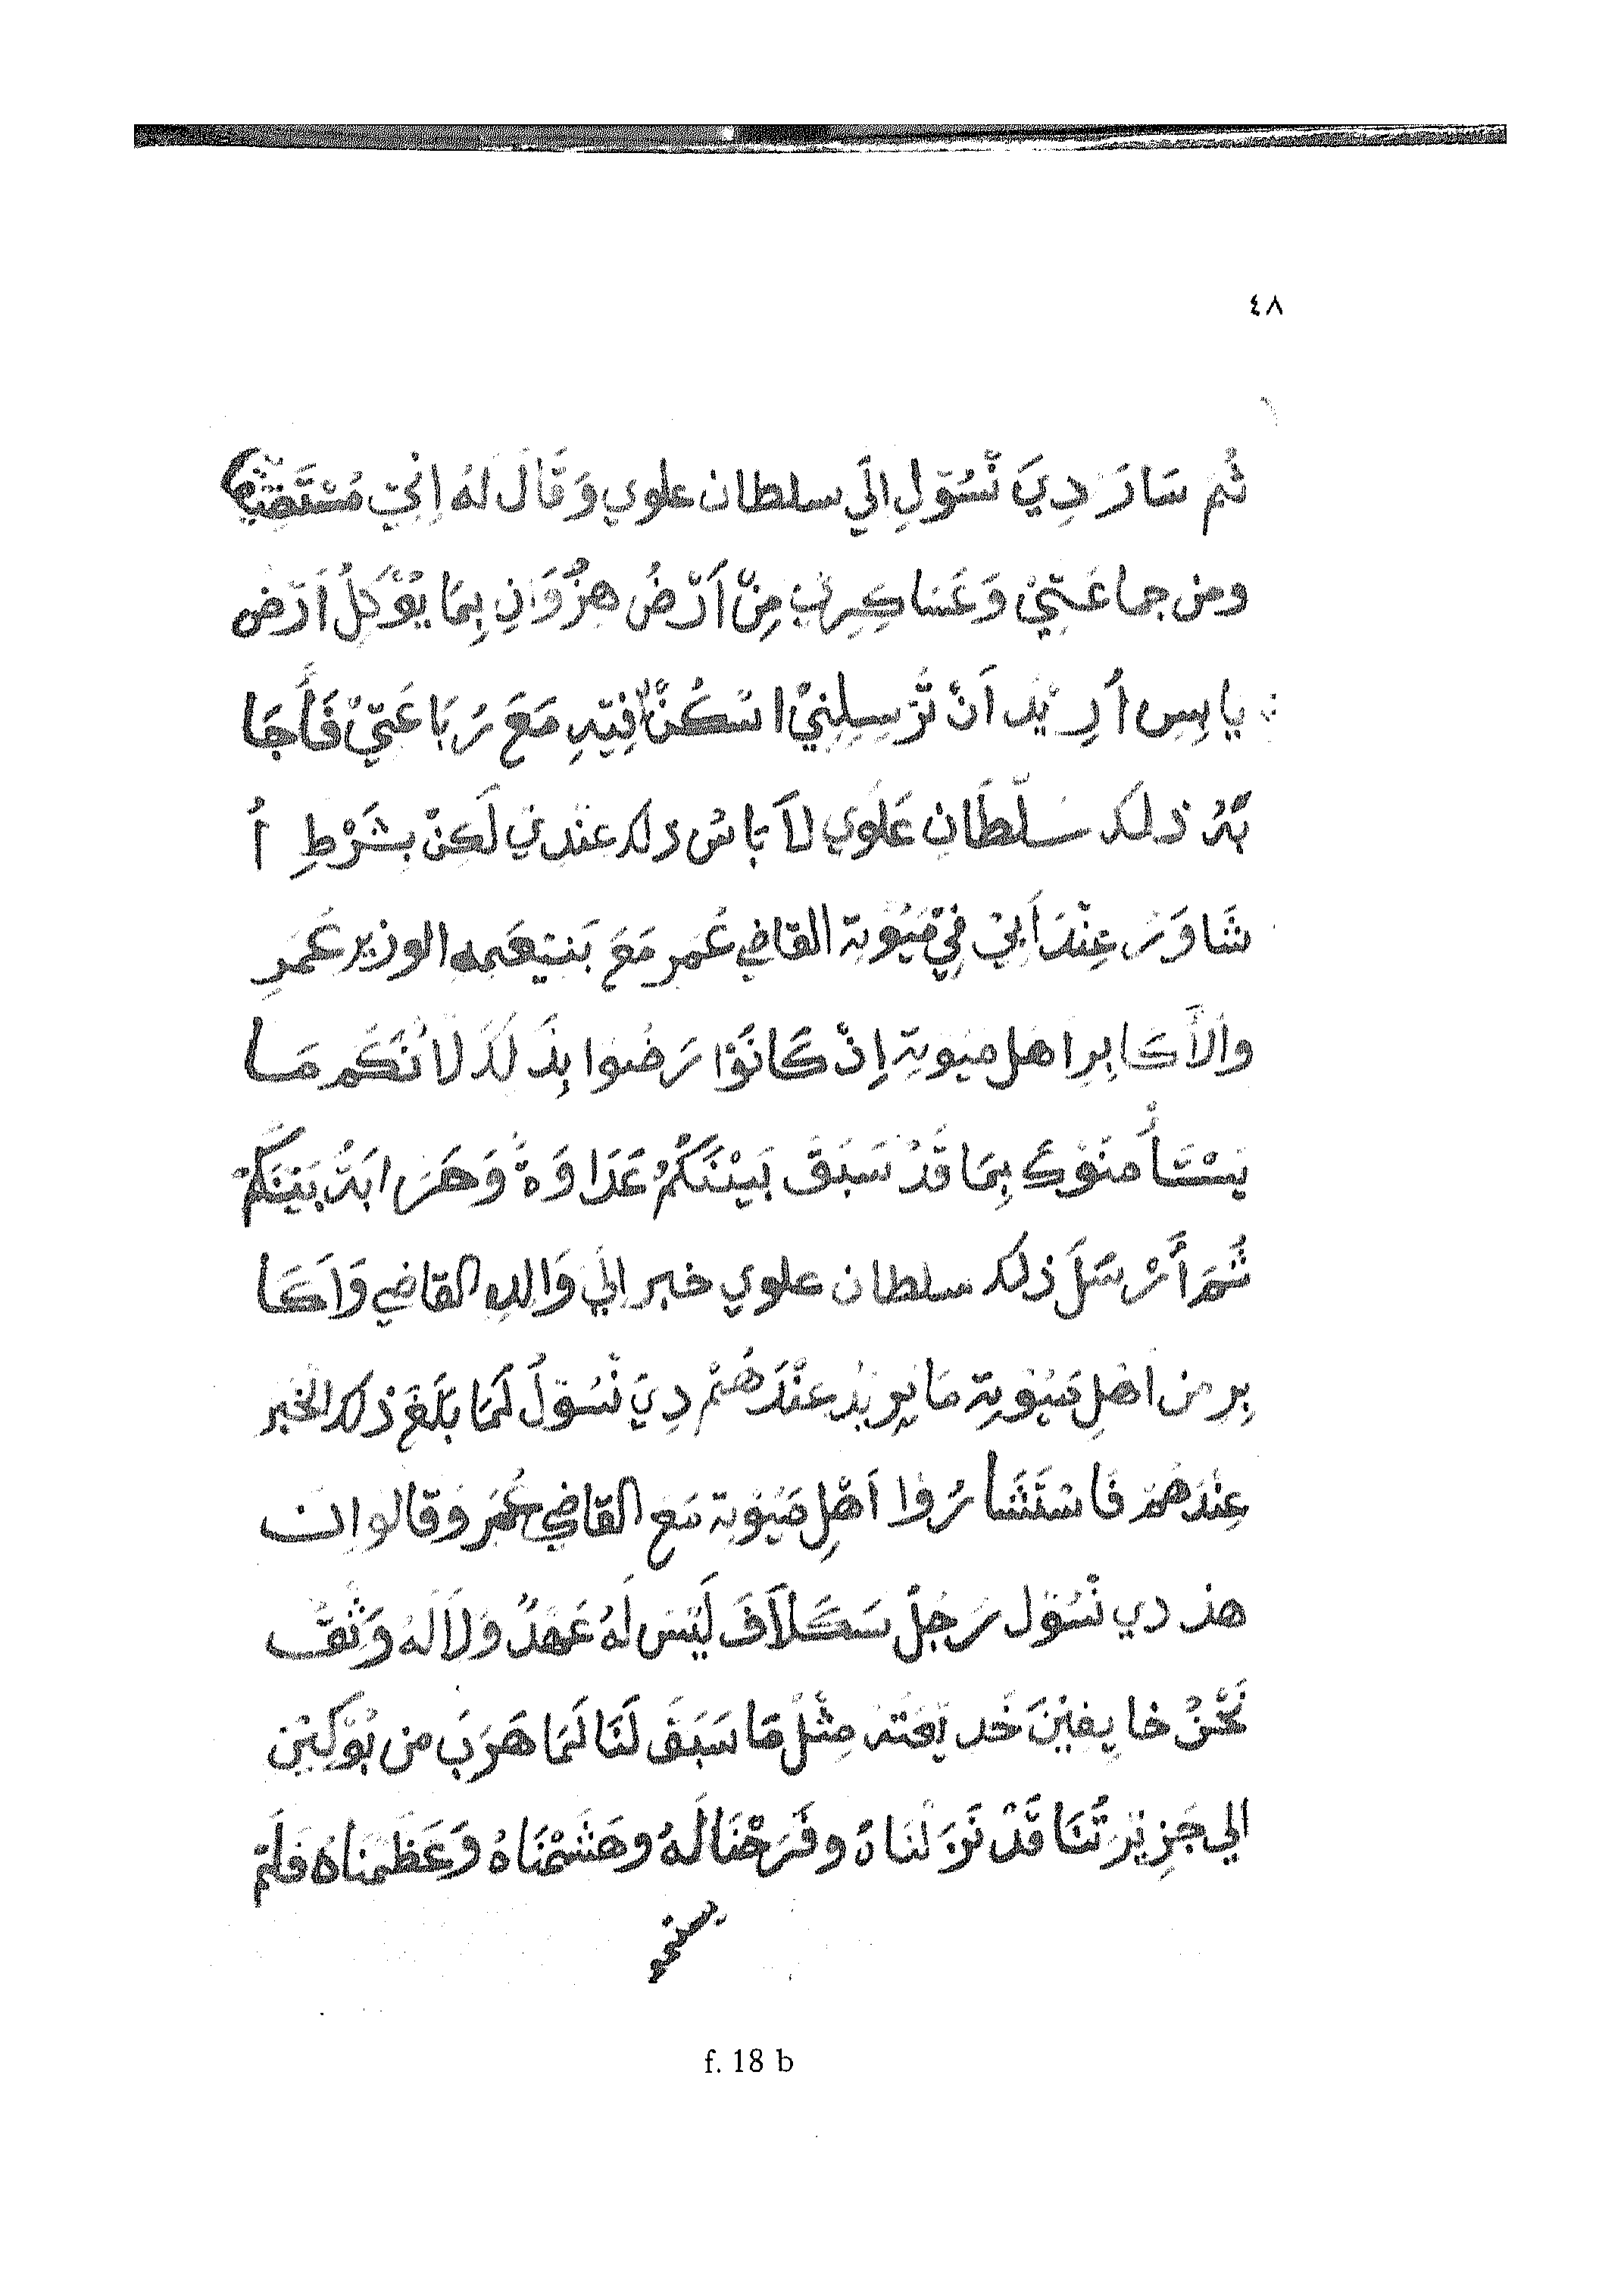 ٤٨
ثُمَ سَارَ دِيَ نْسُوْلِ اِلَي سلطان علوي وَقَالَ لَهُ اِنِيّ
ومن جماعَتِيْ وَعَسَاكِرِيْ مِنْ اَرْضُ هِزُوَانِ بِمَا يُؤْكِلُ اَرْض
يابِس اُرِيْدَ اَنْ تُرْسِلِنِيْ اسْكُنْ فِيْهِ مَعَ رُبَاعَتِيْ فَأَجَا
بَهُ ذلكَ سَلْطَانِ عَلَوي لَا بَاسُ ذلك عِنْدِيْ لَكِنْ بِشَرْطِ اُ
شَاوَرُ عِنْدَ اَبِيْ فِيْ مَيُوْتِة القاضِي عُمَر مَعَ بَنِيعَمِهِ الوزير عُمَرِ
وَالَأكَابِرِ اهْل ميوتِة اِنْ كَانُوْا رَضُوا بِذَلَكَ لَانُكَم مَا
يَسْتَأْمنُوْكَ بِمَا قَدْ سَبَقَ بَيْنَكُمُ عَدَاوَةُ وَحَرَابَةُ بَيْنَكُمْ
ثُمَ أَرْسَلَ ذلكَ سلطان علوي خبر اِلَي وَالِدِهِ القاضي وَاَكَا
بِرِ من اهْلِ مَيُوْتِة مَا يِرِيْدُ عِنْدَهُمْ دِيَ نْسُوْلُ لَمَا بَلَغَ ذلَكَ الخَبر
عِنْدَهُمْ فَاسْتَشَارُوْا اَهْلِ مَيُوْتِة مَعَ القَاضِي عُمَر وَقالوا اِن
هذ دي نْسُوْل رَجُلُ سَكَلَافَ لَيْسَ لَهُ عَهْدُ وَلَا لَهُ وَثْقُ
نَحْنُ خايِفِيْنَ خَدِيْعَتَهُ مِثْلُ مَا سَبَقَ لَنَا لَمَا هَرَبَ من بُوْكِيْن
الي جَزِيْرَتُنَا قَدْ نَزَلْنَاهُ وفَرَحْنَا لَهُ وحَشَمْنَاهُ وَعَظَمْنَاهُ فَلَمْ
f. 18 b